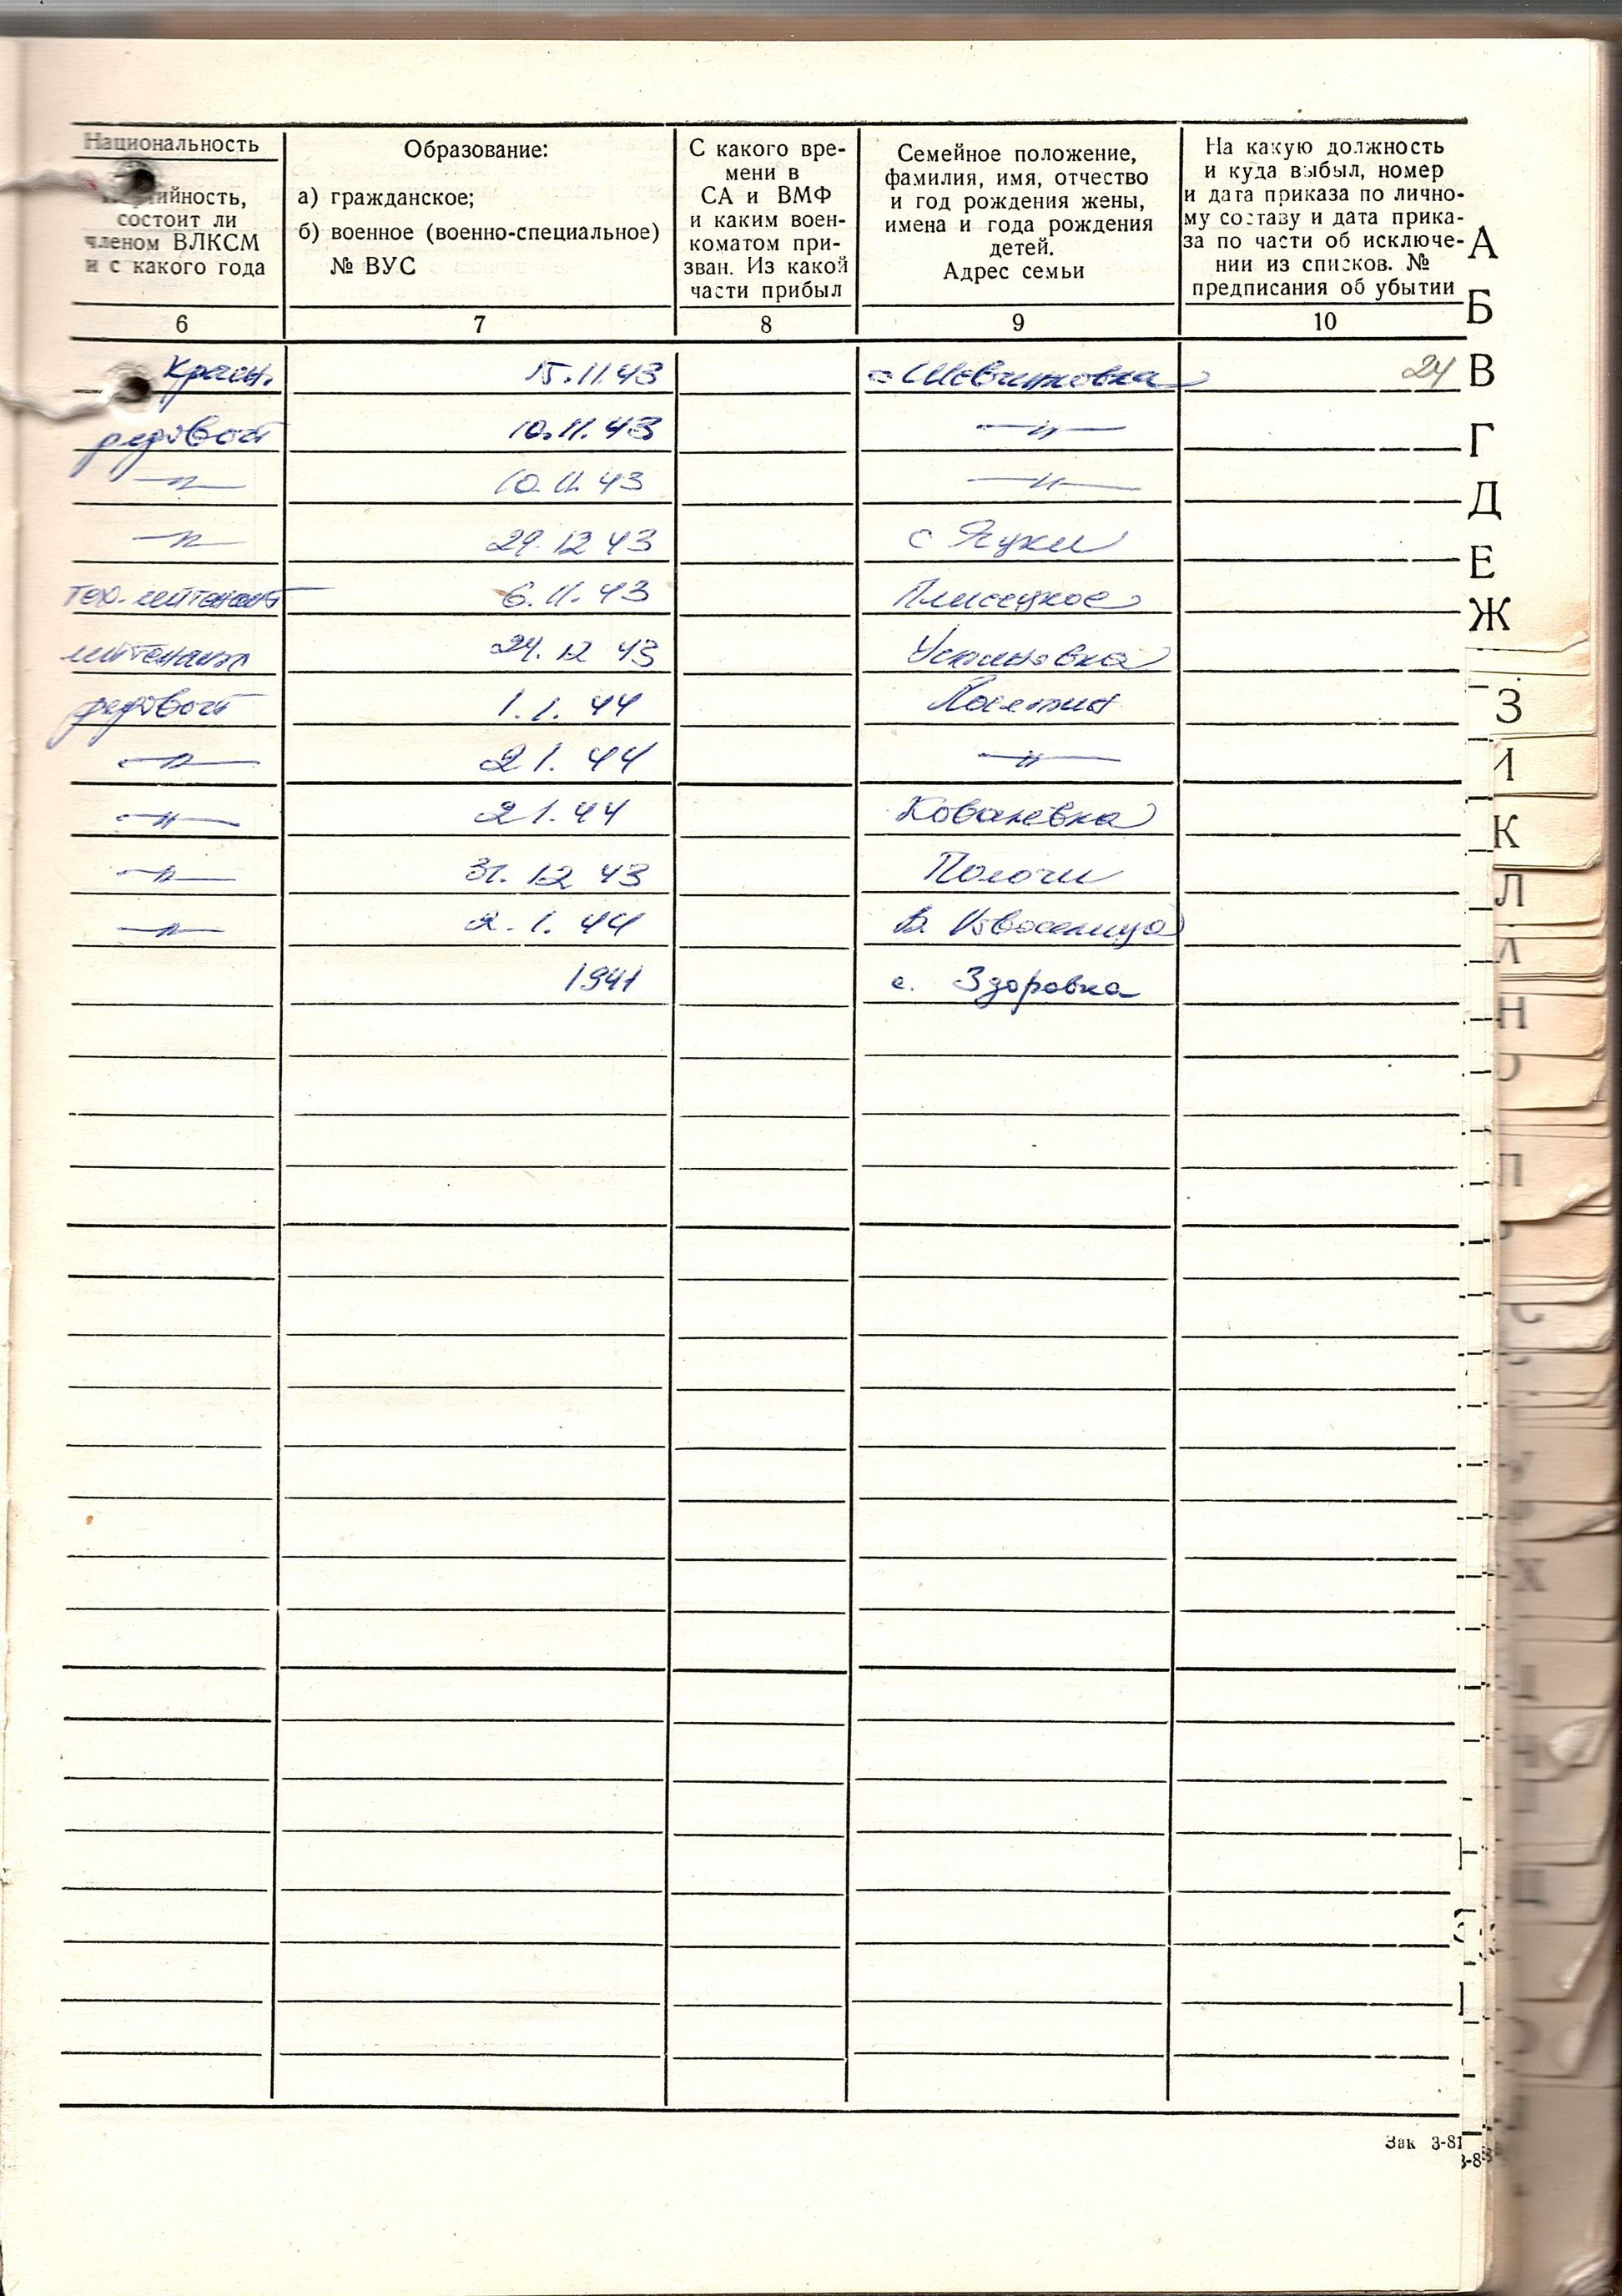 Национальность
ийность,
состоит ли
членом ВЛКСМ
и с какого года
Образование:
а) гражданское;
б) военное (военно-специальное)
№ ВУС
С какого вре-
мени в
СА и ВМФ
и каким воен-
коматом при-
зван. Из какой
части прибыл
Семейное положение,
фамилия, имя, отчество
и год рождения жены,
имена и года рождения
детей.
Адрес семьи
На какую должность
и куда выбыл, номер
и дата приказа по лично-
му составу и дата прика-
за по части об исключе-
нии из списков. №
предписания об убытии
6 7 8 9 10
Красн. 15.11.43 24
рядовой 10.11.43 —"—
—"— 10.11.43 —"—
—"— 29.12 43 с Яцки
тех. лейтенант 6.11.43 Плисецкое
лейтенант 24.12 43 Устиновка
рядовой 1.1.44
—"— 2 1. 44 —"—
—"— 2 1. 44 Ковалевка
—"— 31. 12 43 Пологи
—"— 2. 1. 44
1941 с. Здоровка
А
Б
В
Г
Д
Е
Ж
З
И
К
Л
Н
П
Х
Зак 3-81